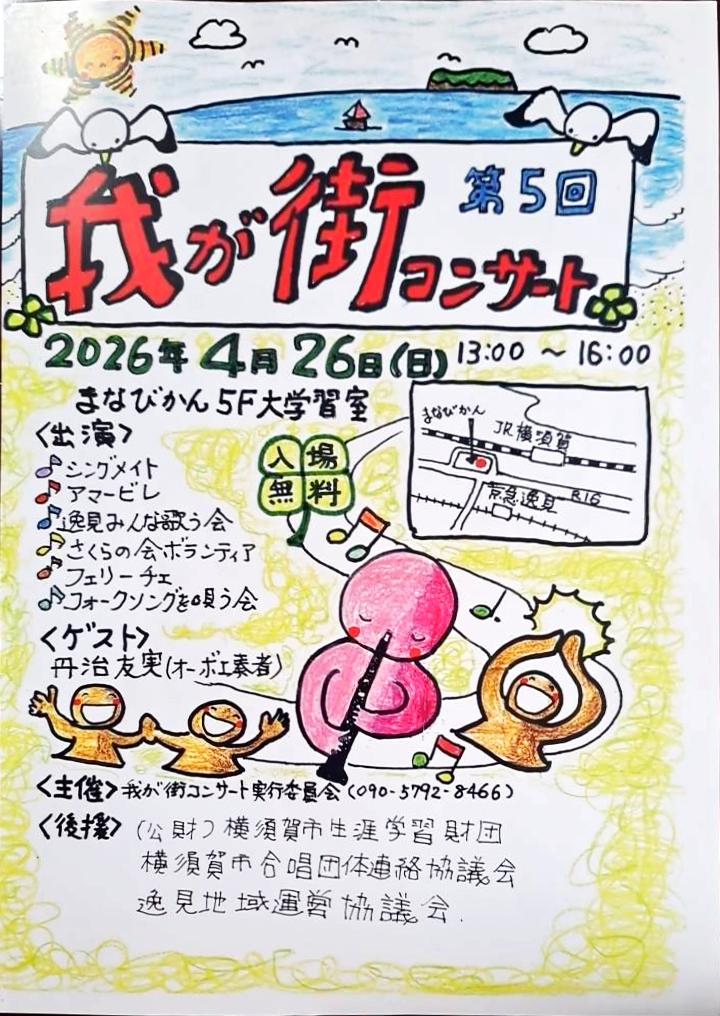 我が街コンサート
第5回
2026年4月26日(日) 13:00 ～ 16:00
まなびかん5F大学習室
<出演>
シングメイト
アマービレ
逸見みんな歌う会
さくらの会ボランティア
フェリーチェ
フォークソングを唄う会
<ゲスト>
丹治友実(オーボエ奏者)
入場
無料
まなびかん
JR横須賀
京急逸見
R16
<主催> 我が街コンサート実行委員会 (090-5792-8466)
<後援> (公財) 横須賀市生涯学習財団
横須賀市合唱団体連絡協議会
逸見地域運営協議会.